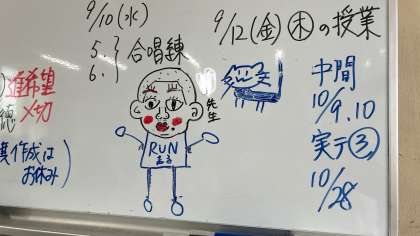 9/10(水)
5.
6. } 合唱練
9/12(金) ㊍の授業
進希望
〆切
徳
作成は
お休み)
先生
RUN
走る
中間
10/9.10
実テ③
10/28